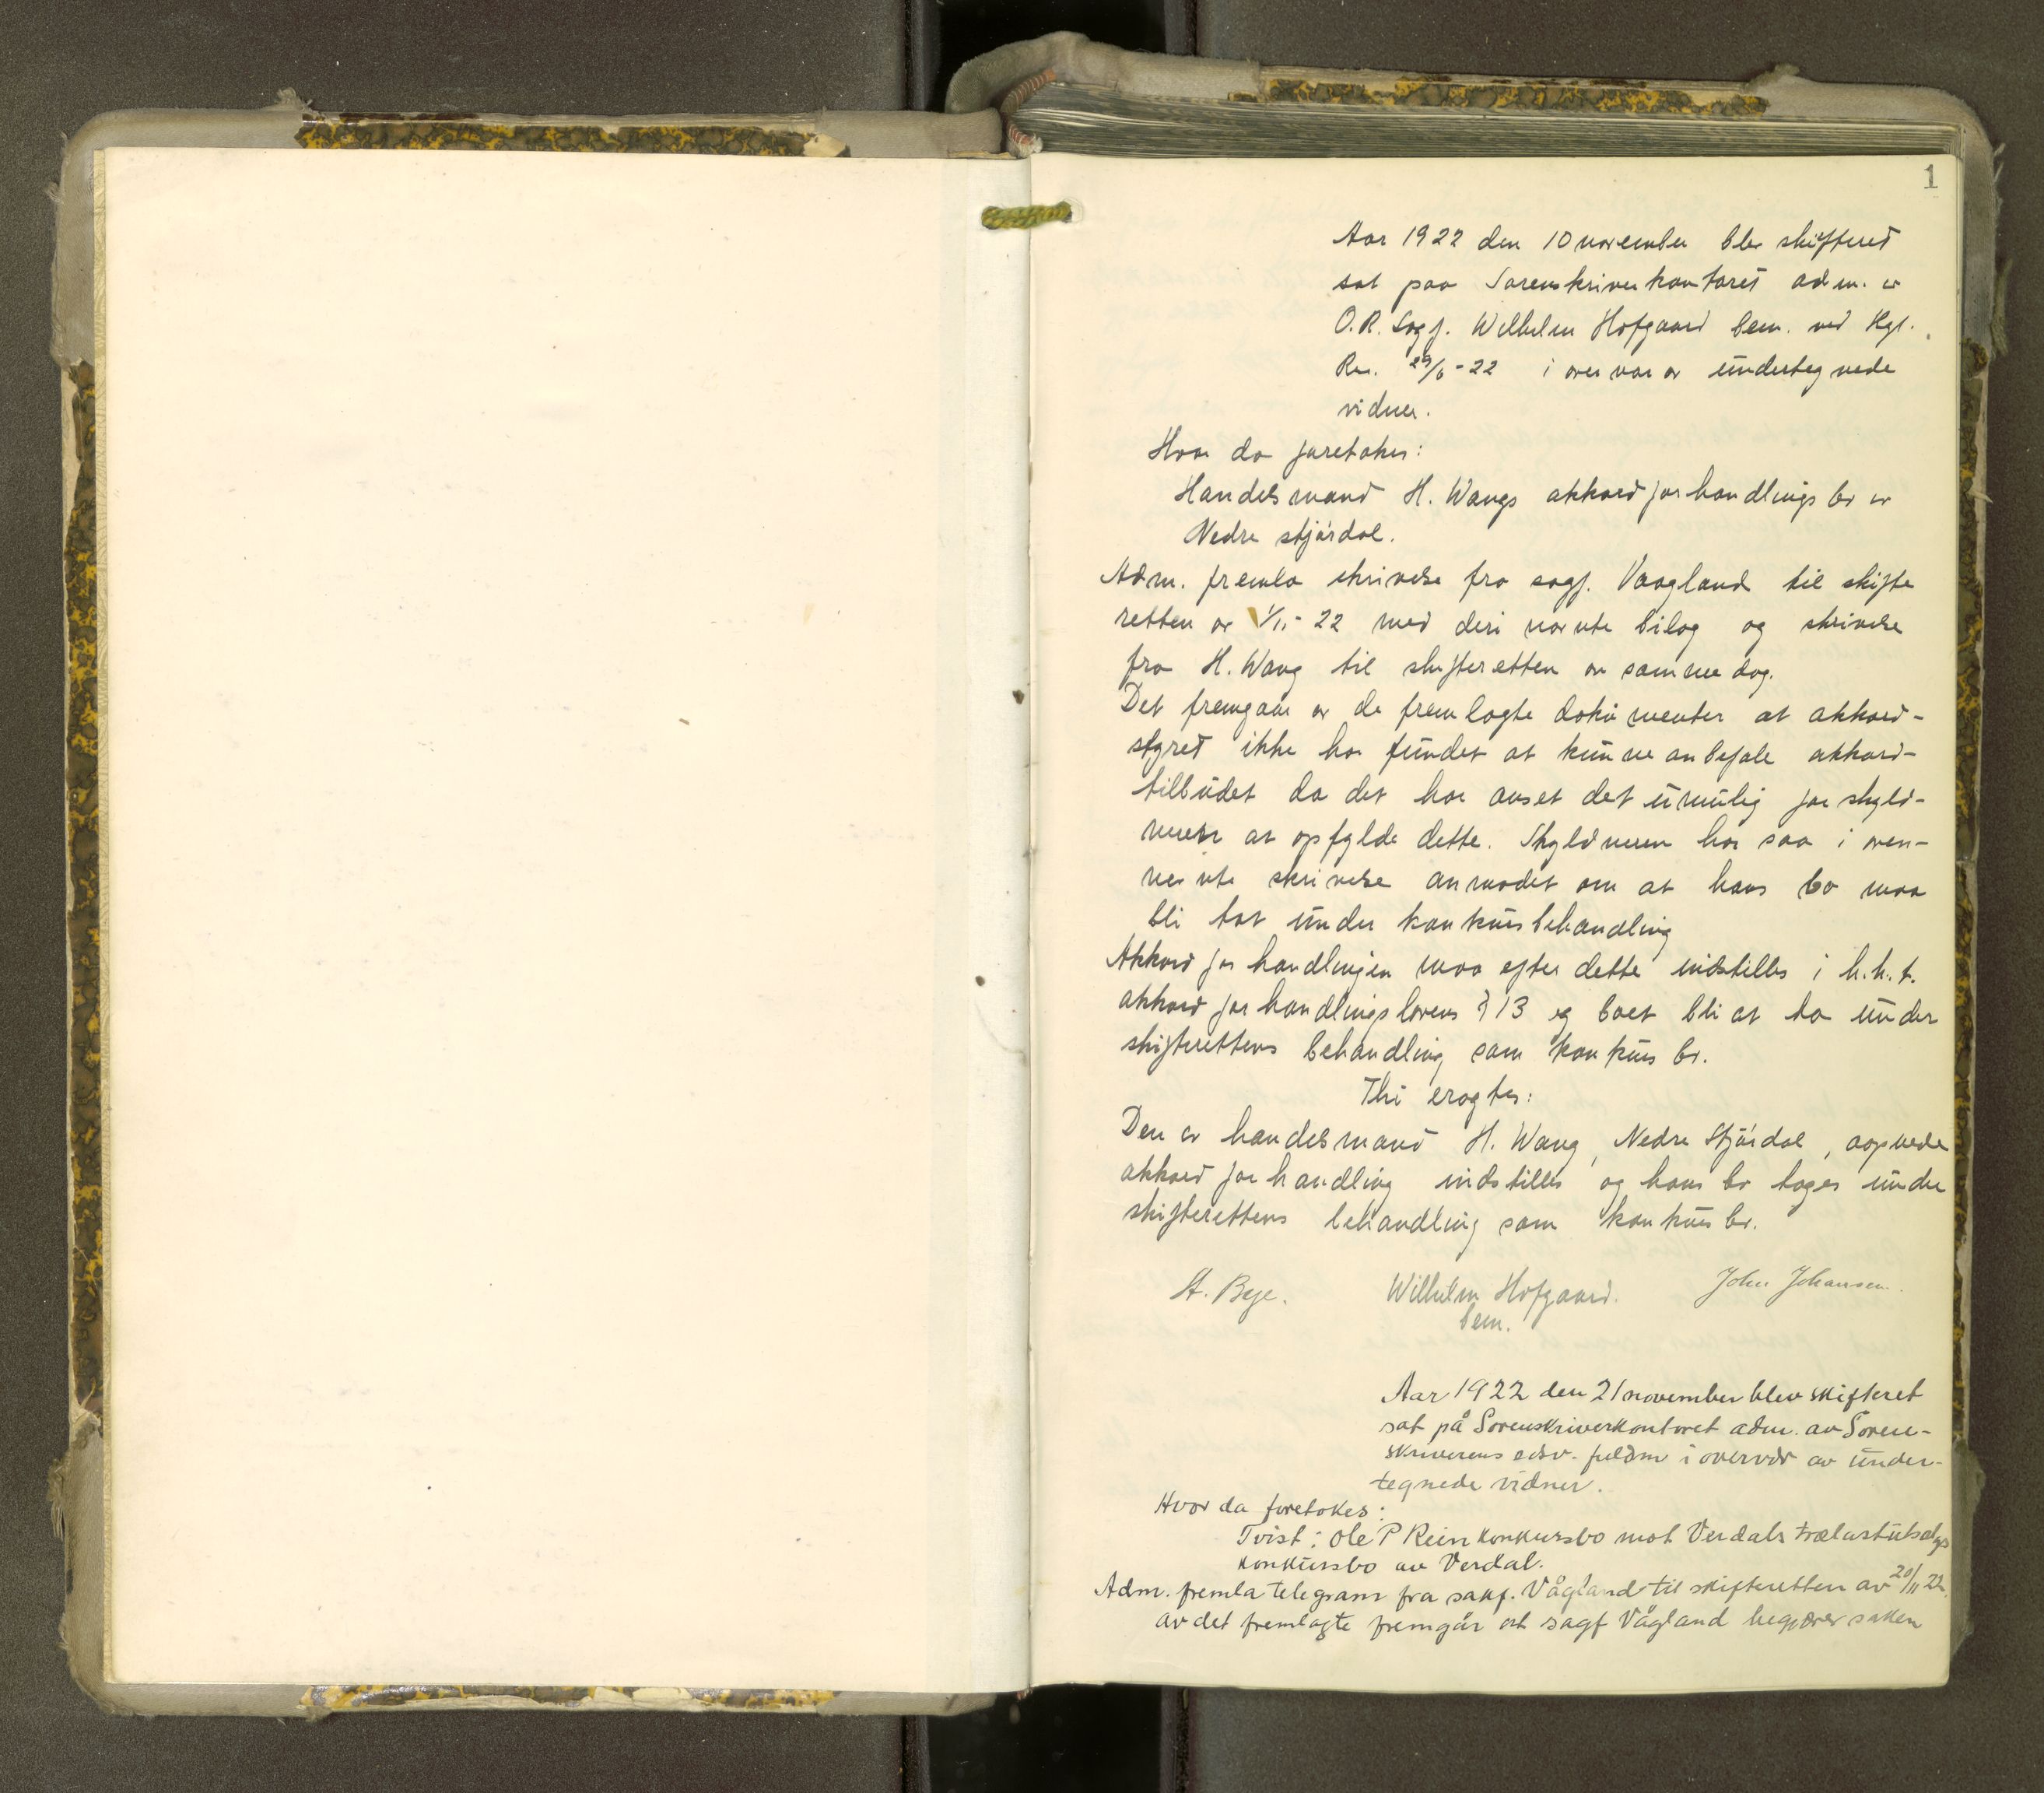 1
Aar 1922 den 10 november blev skifteret
sat paa Sorenskriverkontoret adm. av
O.R. Sagf. Wilhelm Hofgaard bem. ved Kgl.
Res. 29/6-22 i overvær av undertegnede
vidner.
Hvor da foretokes:
Handelsmand H. Wangs akkordforhandlingsbo av
Nedre Stjørdal.
Adm. fremla skrivelse fra sagf. Vaagland til skifte
retten av 1/11-22 med deri nævnte bilag og skrivelse
fra H. Wang til skifteretten av samme dag.
Det fremgaar av de fremlagte dokumenter at akkord-
styret ikke har fundet at kunne anbefale akkord-
tilbudet da det har anset det umulig for skyld-
neren at opfylde dette. Skyldneren har saa i oven-
nevnte skrivelse anmodet om at hans bo maa
bli tat under konkursbehandling
Akkordforhandlingen maa efter dette indstilles i h.h.t.
akkordforhandlingslovens § 13 og boet bli at ta under
skifterettens behandling som konkursbo.
Thi eragtes:
Den av handelsmand H. Wang, Nedre Stjørdal, aapnede
akkordforhandling indstilles og hans bo tages under
skifterettens behandling som konkursbo.
A. Bye. Wilhelm Hofgaard. John Johansen.
bem.
Aar 1922 den 21 november blev skifteret
sat på Sorenskriverkontoret adm. av Soren-
skriverens edsv. fuldm i overvær av under-
tegnede vidner.
Hvor da foretokes:
Tvist: Ole P Rein konkursbo mot Verdals trælastutsalgs
konkursbo av Verdal.
Adm. fremla telegram fra sakf. Vågland til skifteretten av 20/11 22.
Av det fremlagte fremgår at sagf Vågland begjærer saken